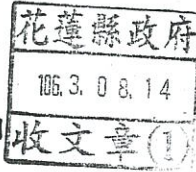 花蓮縣政府
106. 3. 08. 14
收文章(1)